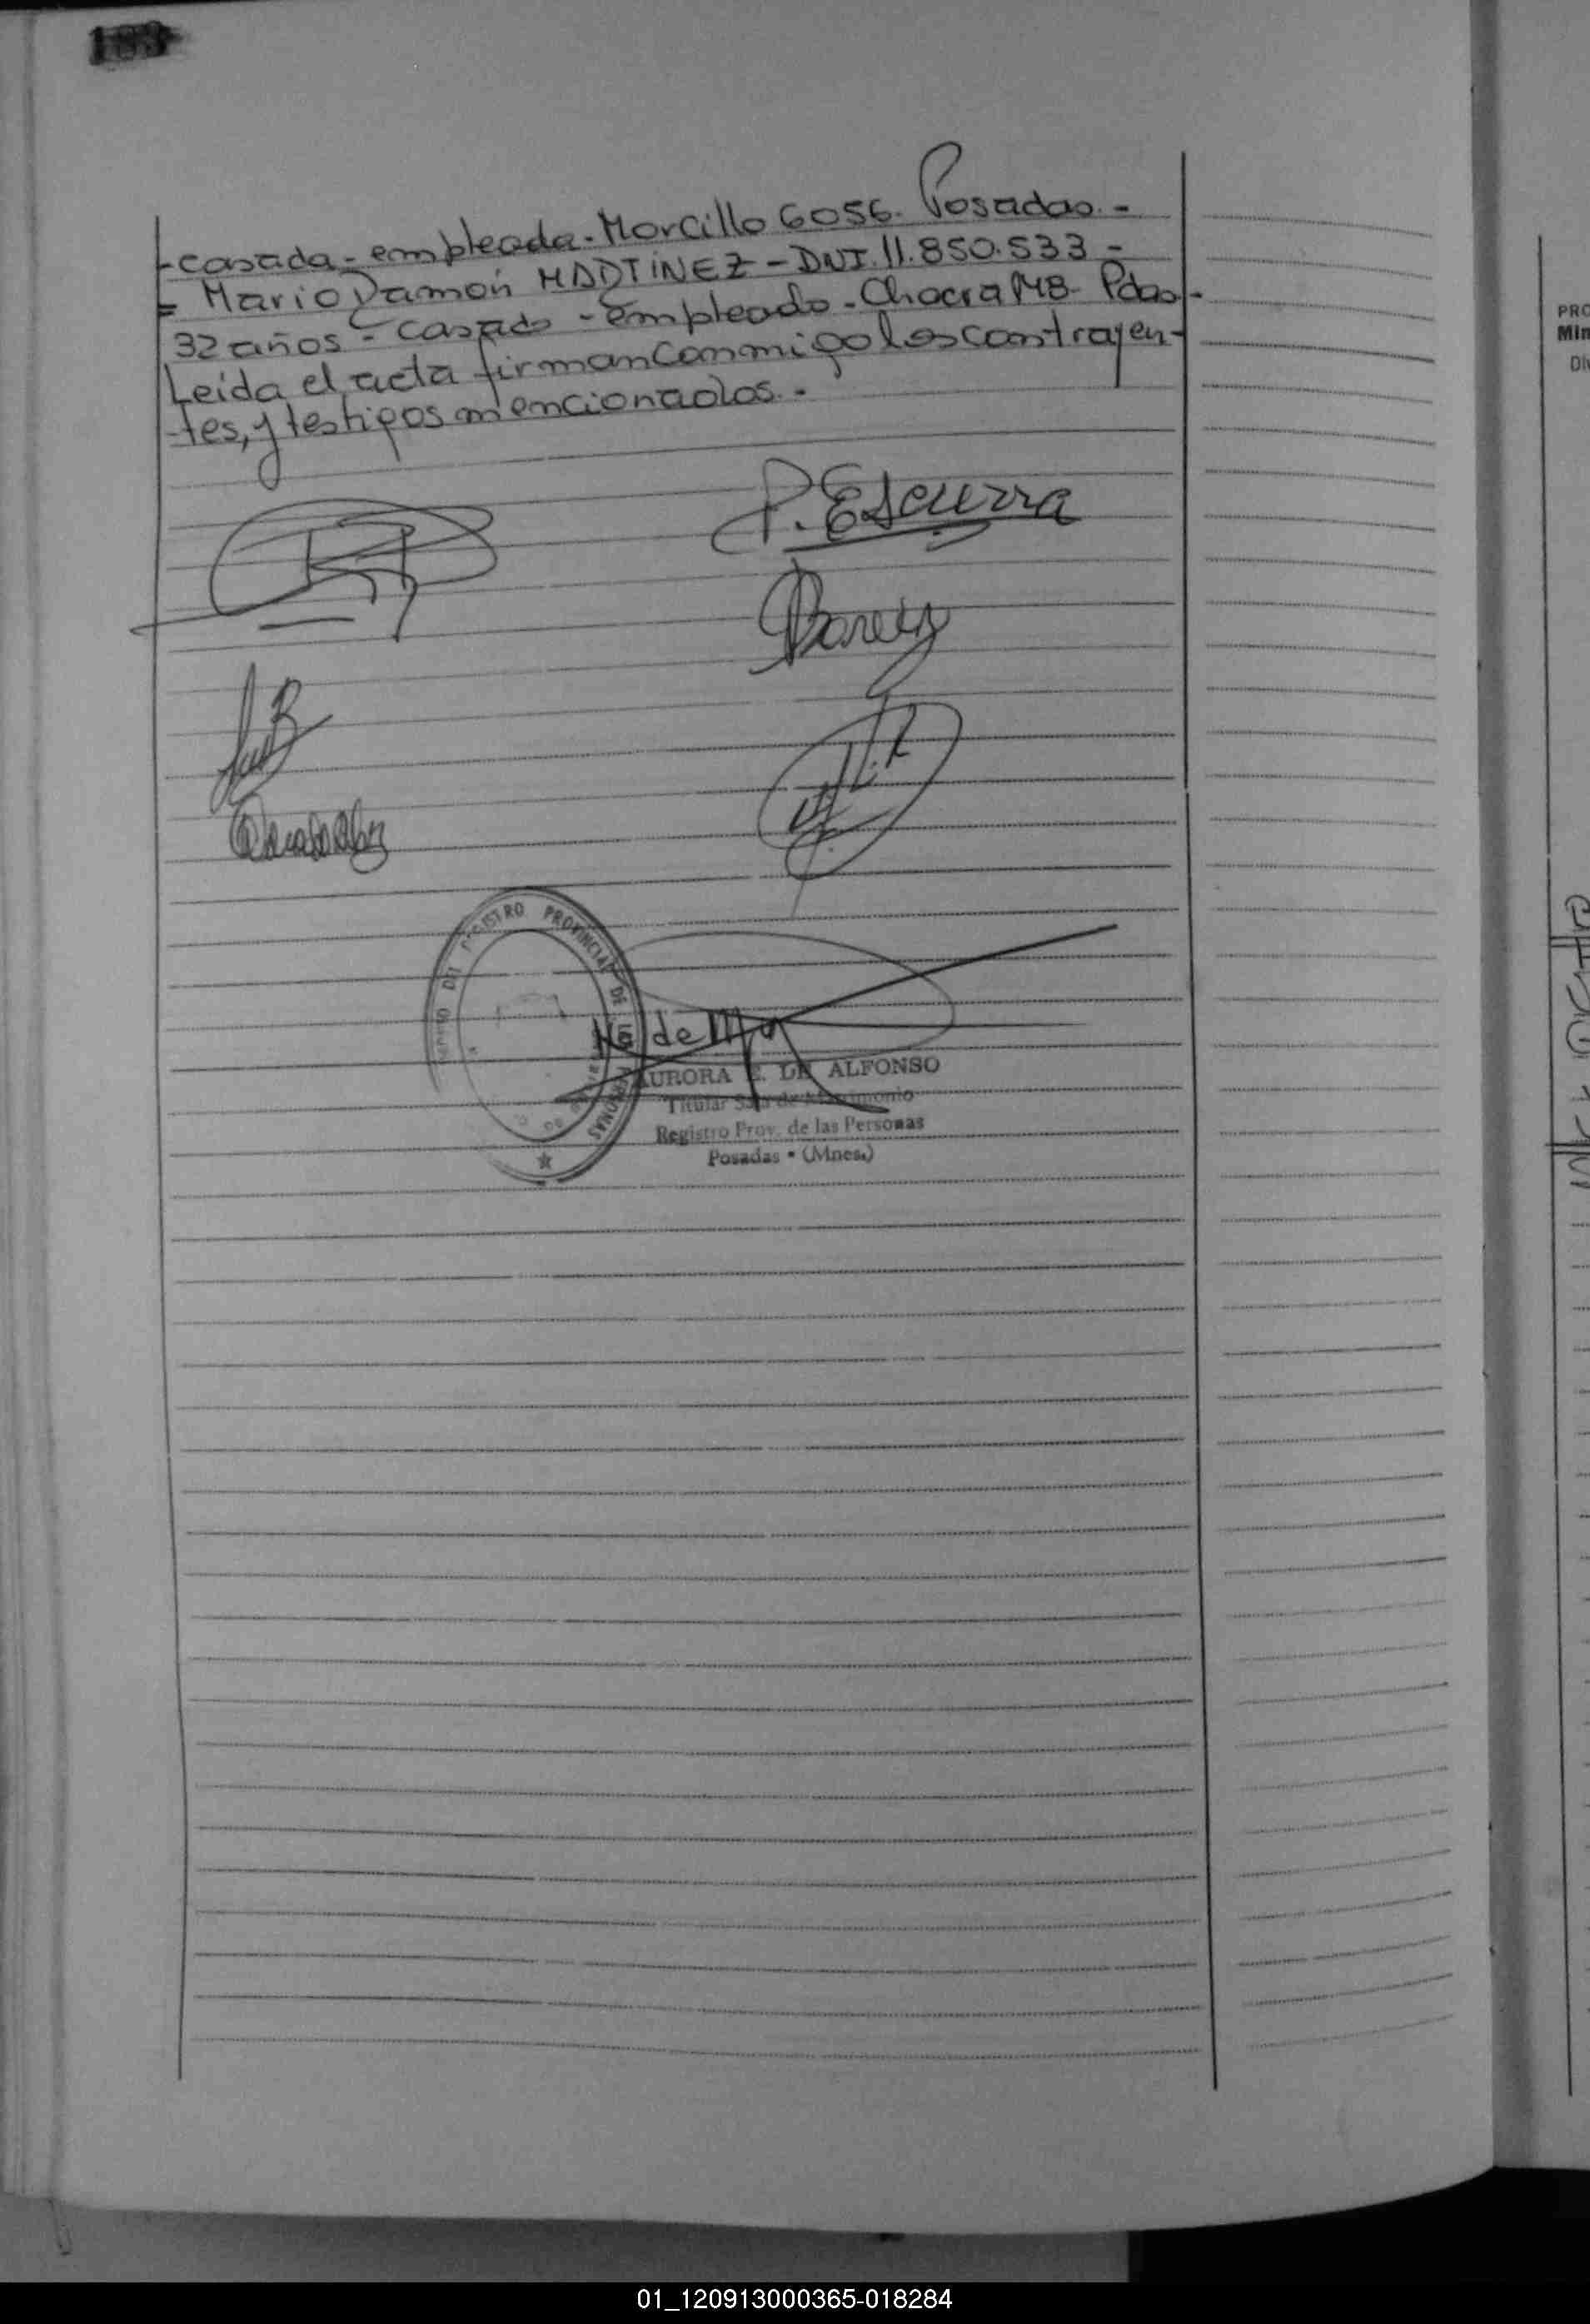 183
- casada - empleada - Morcillo 6056. Posadas. -
= Mario Ramón MARTINEZ - DNI. 11.850.533 -
32 años - casado - empleado - Chacra 148 - Pdas. -
Leída el acta firman conmigo los contrayen-
-tes, y testigos mencionados. -
P. Escurra
REGISTRO PROVINCIAL DE LAS PERSONAS
AURORA E. DE ALFONSO
Titular Sala de Matrimonio
Registro Prov. de las Personas
Posadas - (Mnes.)
PRO
Min
Di
01_120913000365-018284